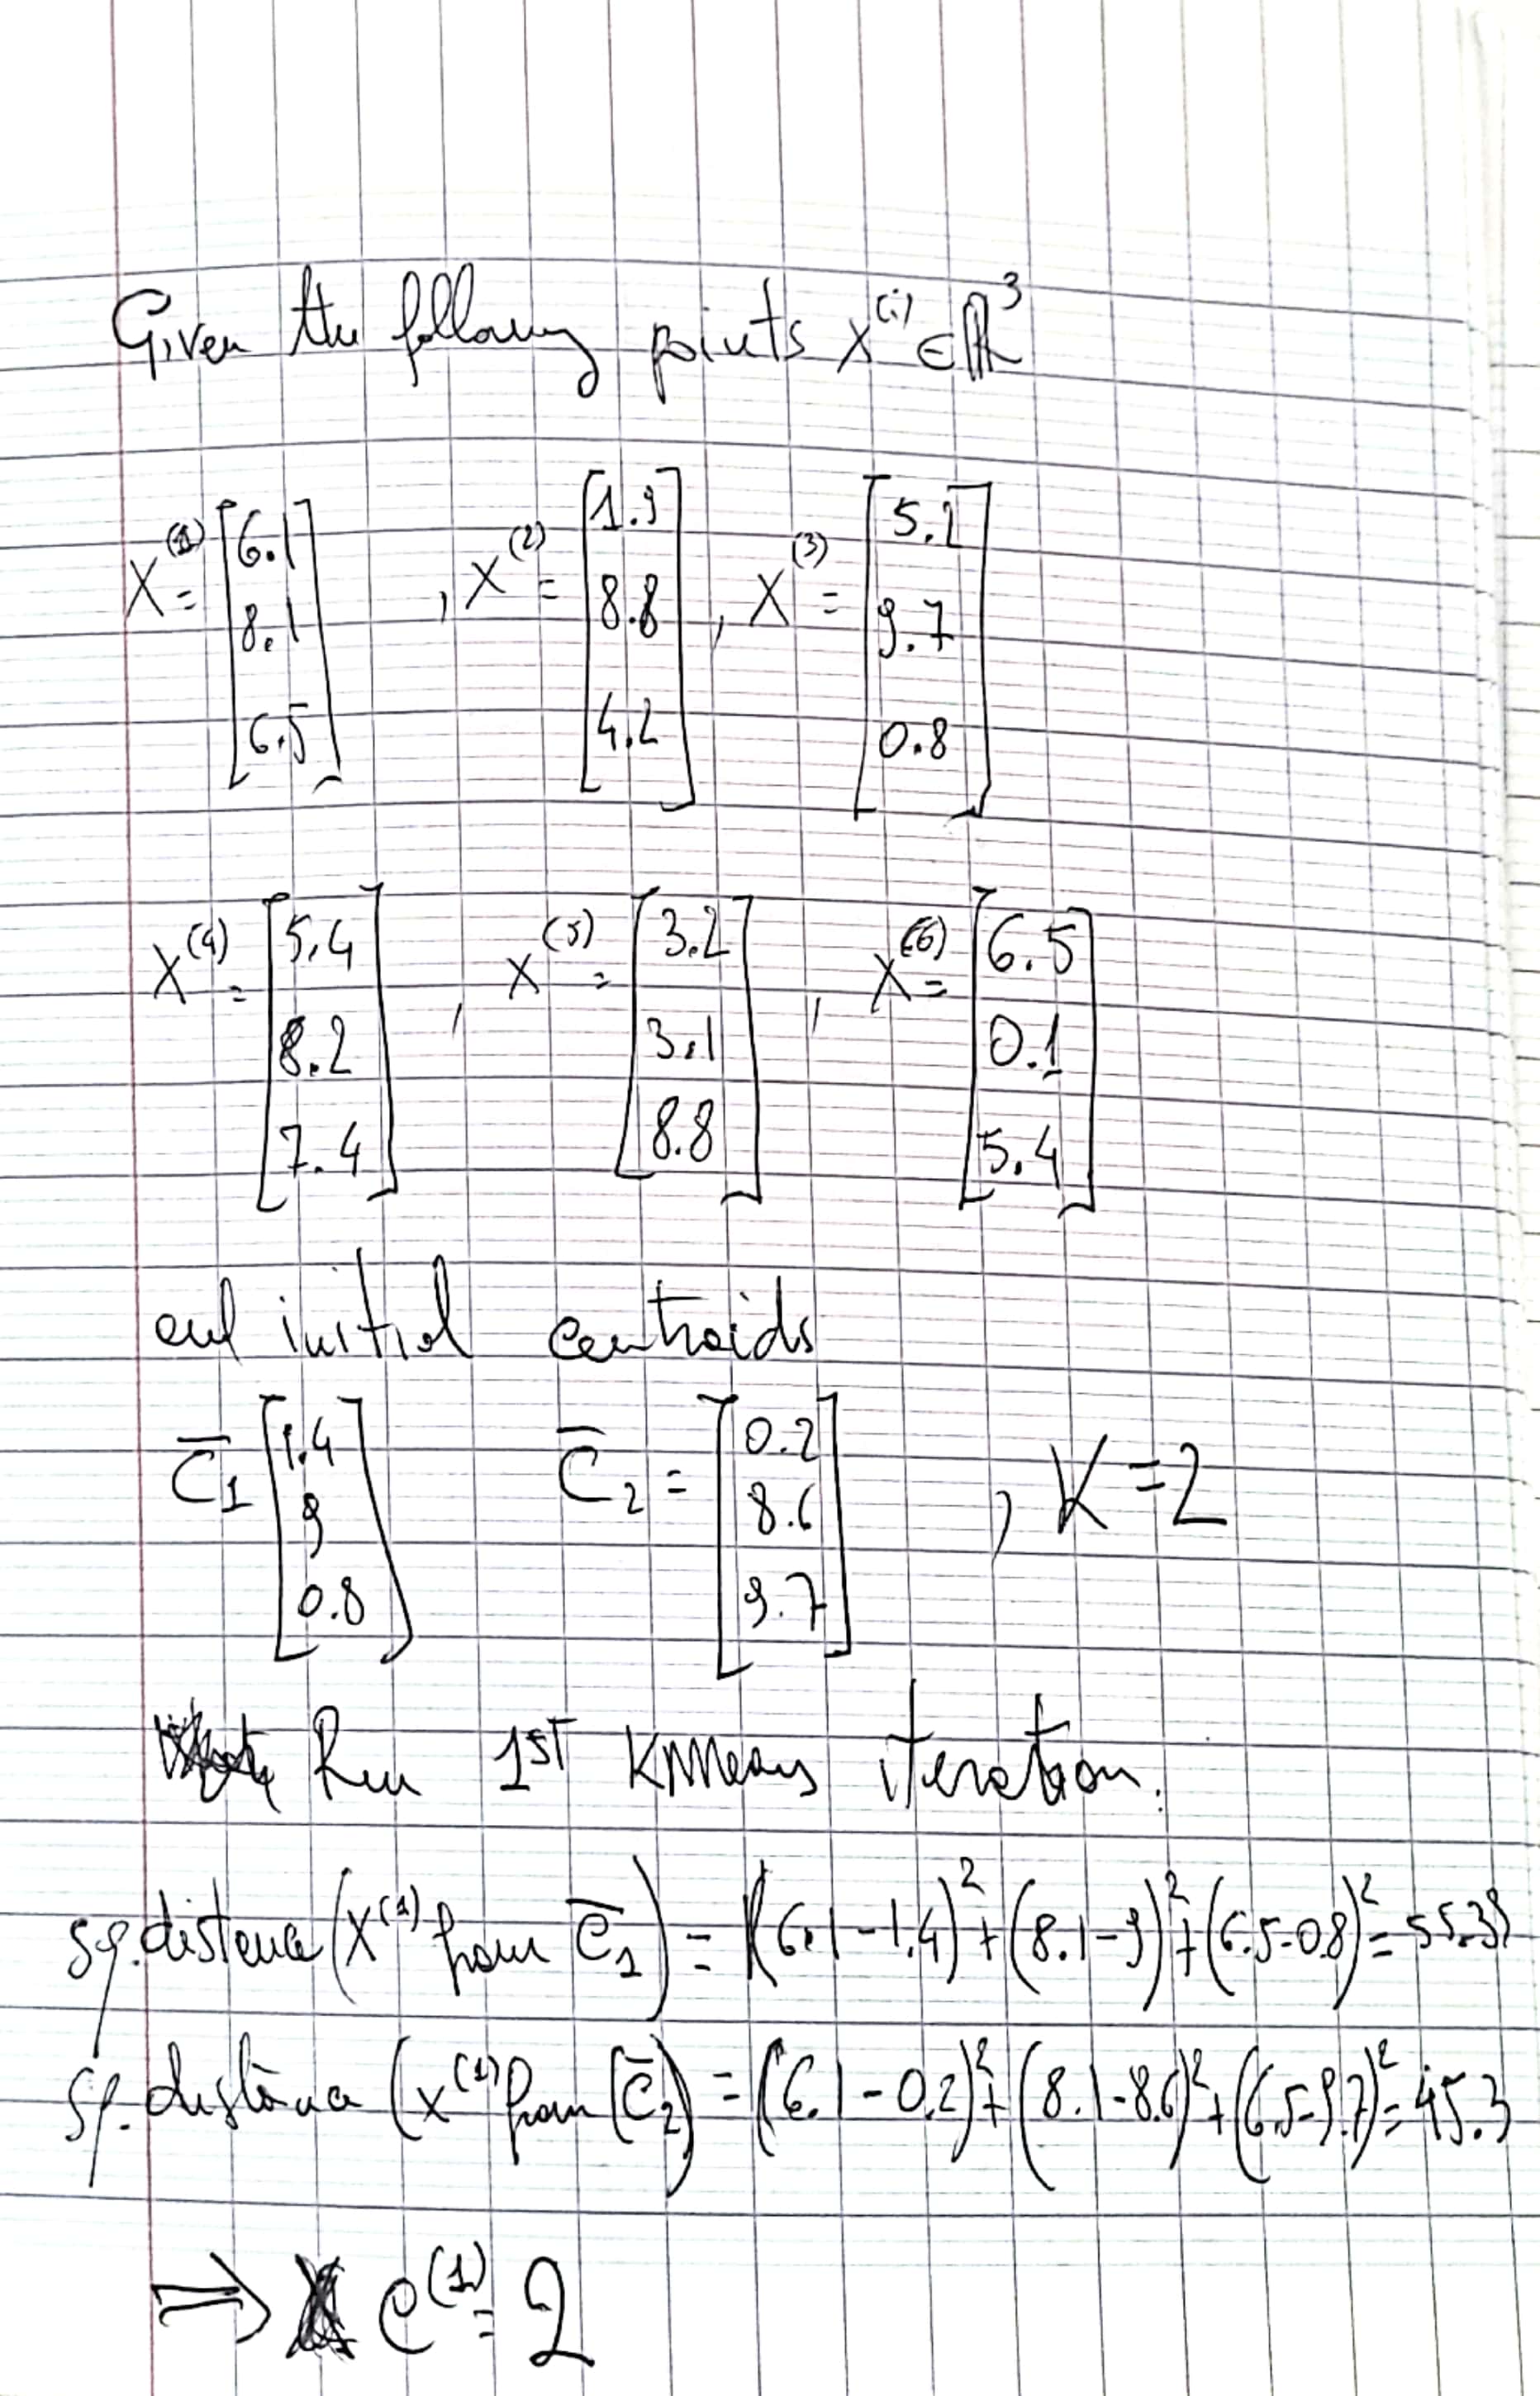 Given the following points x^(i) ∈ ℝ^3
X^(1) = [6.1 8.1 6.5], X^(2) = [1.9 8.8 4.2], X^(3) = [5.2 9.7 0.8]
X^(4) = [5.4 8.2 7.4], X^(5) = [3.2 3.1 8.8], X^(6) = [6.5 0.1 5.4]
and initial centroids
C̅1 [1.4 9 0.8] C̅2 = [0.2 8.6 9.7], K=2
Run 1ST KMeans iteration.
sq.distance (X^(1) from C̅1) = (6.1-1.4)^2 + (8.1-9)^2 + (6.5-0.8)^2 = 55.39
sq.distance (x^(1) from (C̅2) = (6.1-0.2)^2 + (8.1-8.6)^2 + (6.5-9.7)^2 = 45.3
⇒ C^(1) = 2